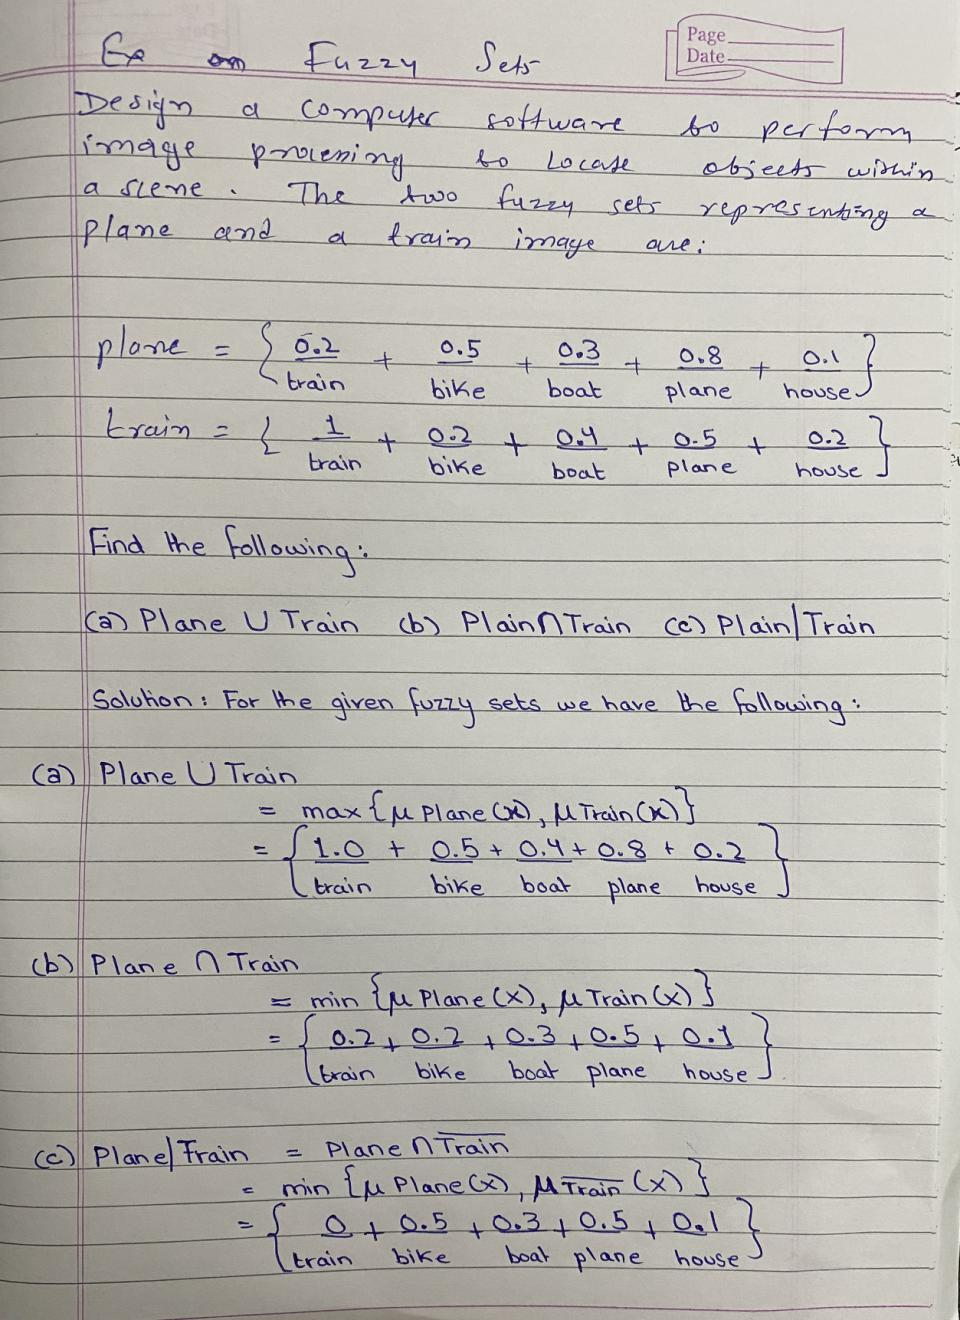 Page
Date
Ex on Fuzzy Sets
Design a computer software to perform
image processing to Locate objects within
a scene. The two fuzzy sets representing a
plane and a train image are:
plane = { 0.2/train + 0.5/bike + 0.3/boat + 0.8/plane + 0.1/house }
train = { 1/train + 0.2/bike + 0.4/boat + 0.5/plane + 0.2/house }
Find the following:
(a) Plane ∪ Train (b) Plain∩Train (c) Plain|Train
Solution: For the given fuzzy sets we have the following:
(a) Plane ∪ Train
= max {μ Plane (x), μ Train (x)}
= { 1.0/train + 0.5/bike + 0.4/boat + 0.8/plane + 0.2/house }
(b) Plane ∩ Train
= min {μ Plane (x), μ Train (x)}
= { 0.2/train + 0.2/bike + 0.3/boat + 0.5/plane + 0.1/house }
(c) Plane|Train = Plane ∩ T̅r̅a̅i̅n̅
= min {μ Plane (x), μ T̅r̅a̅i̅n̅ (x)}
= { 0/train + 0.5/bike + 0.3/boat + 0.5/plane + 0.1/house }